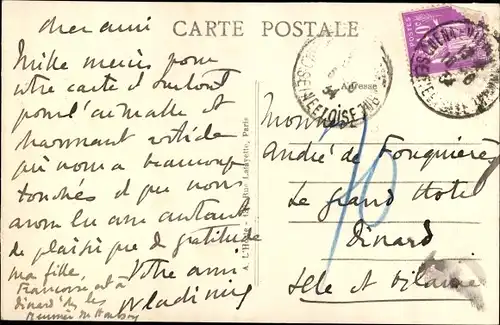 CARTE POSTALE
cher ami
Mille mercis pour
votre carte et surtout
pour l'aimable et
charmant article
qui nous a beaucoup
touchés et que nous
avons lu avec autant
de plaisir que de gratitude
Votre ami
Wladimir
ma fille,
Françoise est à
Dinard
A. L'H Rue Lafayette, Paris
Adresse
POSTES
SEINE ET OISE
Monsieur
André de Fouquières
Le Grand Hotel
Dinard
Ille et Vilaine
70